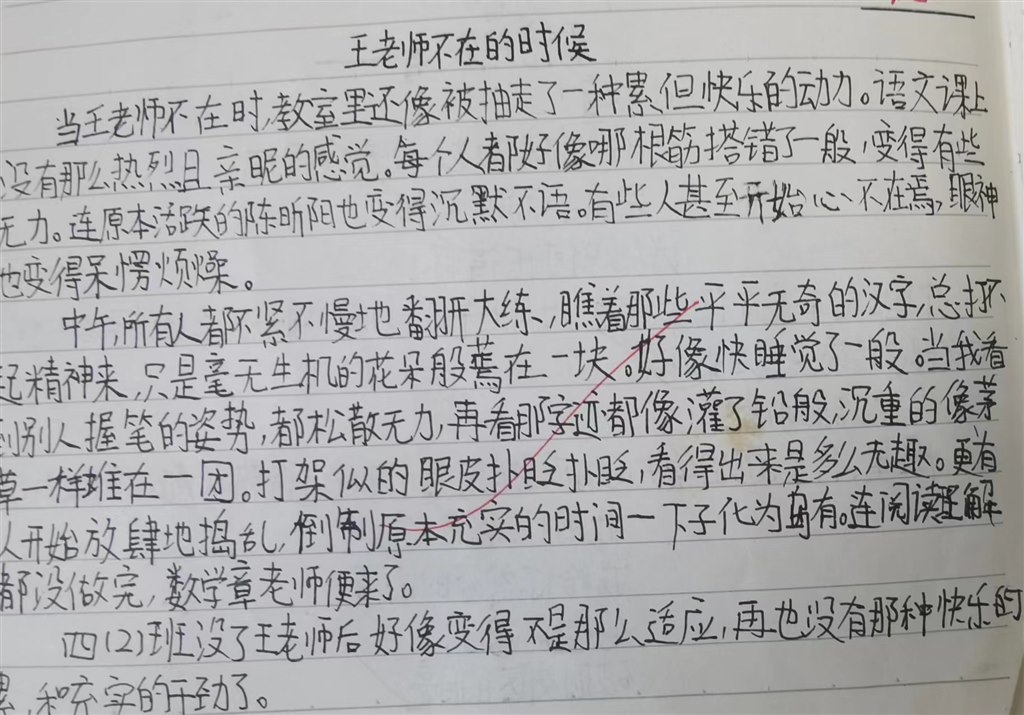 王老师不在的时候
当王老师不在时,教室里还像被抽走了一种累但快乐的动力。语文课上
没有那么热烈且亲昵的感觉。每个人都好像哪根筋搭错了一般,变得有些
无力。连原本活跃的陈昕阳也变得沉默不语。有些人甚至开始心不在焉,眼神
也变得呆愣烦燥。
中午,所有人都不紧不慢地翻开大练,瞧着那些平平无奇的汉字,总打不
起精神来,只是毫无生机的花朵般蔫在一块。好像快睡觉了一般。当我看
到别人握笔的姿势,都松散无力,再看那字迹都像灌了铅般,沉重的像茅
草一样堆在一团。打架似的眼皮扑眨扑眨,看得出来是多么无趣。更有
人开始放肆地捣乱,倒制原本充实的时间一下子化为乌有。连阅读理解
都没做完,数学章老师便来了。
四(2)班没了王老师后好像变得不是那么适应,再也没有那种快乐的
累,和充实的干劲了。